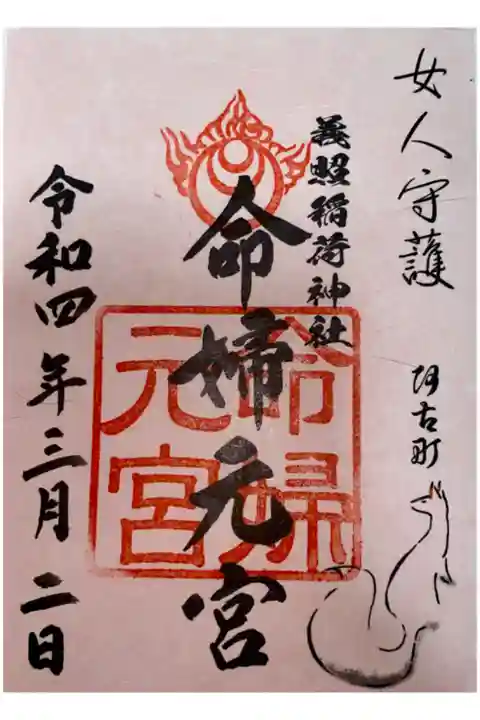 女人守護
阿古町
義照稲荷神社
命婦元宮
命婦
元宮
令和四年三月二日